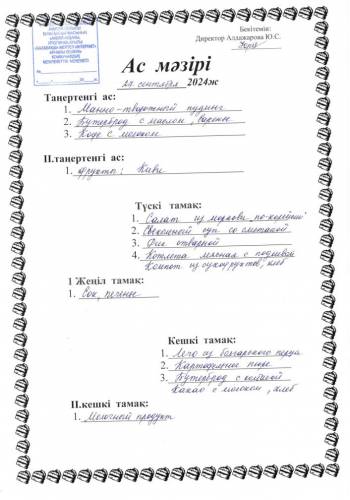 Бекітемін:
Директор Алджарова Ю.С.
Ас мәзірі
сентября 2024ж
Таңертенгі ас:
1. Манно-творожный пудинг
2. Бутерброд с маслом, варенье
3. Кофе с молоком
ІІ.таңертенгі ас:
1. Фрукты: Киви
Түскі тамақ:
1. Салат из моркови по-корейски
2. Свекольный суп со сметаной
3. отварной
4. Котлета мясная с подливой
Компот из сухофруктов, хлеб
1 Жеңіл тамақ:
1. Сок, печенье
Кешкі тамақ:
1. Лечо из болгарского перца
2. Картофельное пюре
3. Бутерброд с
Какао с молоком, хлеб
ІІ.кешкі тамақ:
1. Молочный продукт